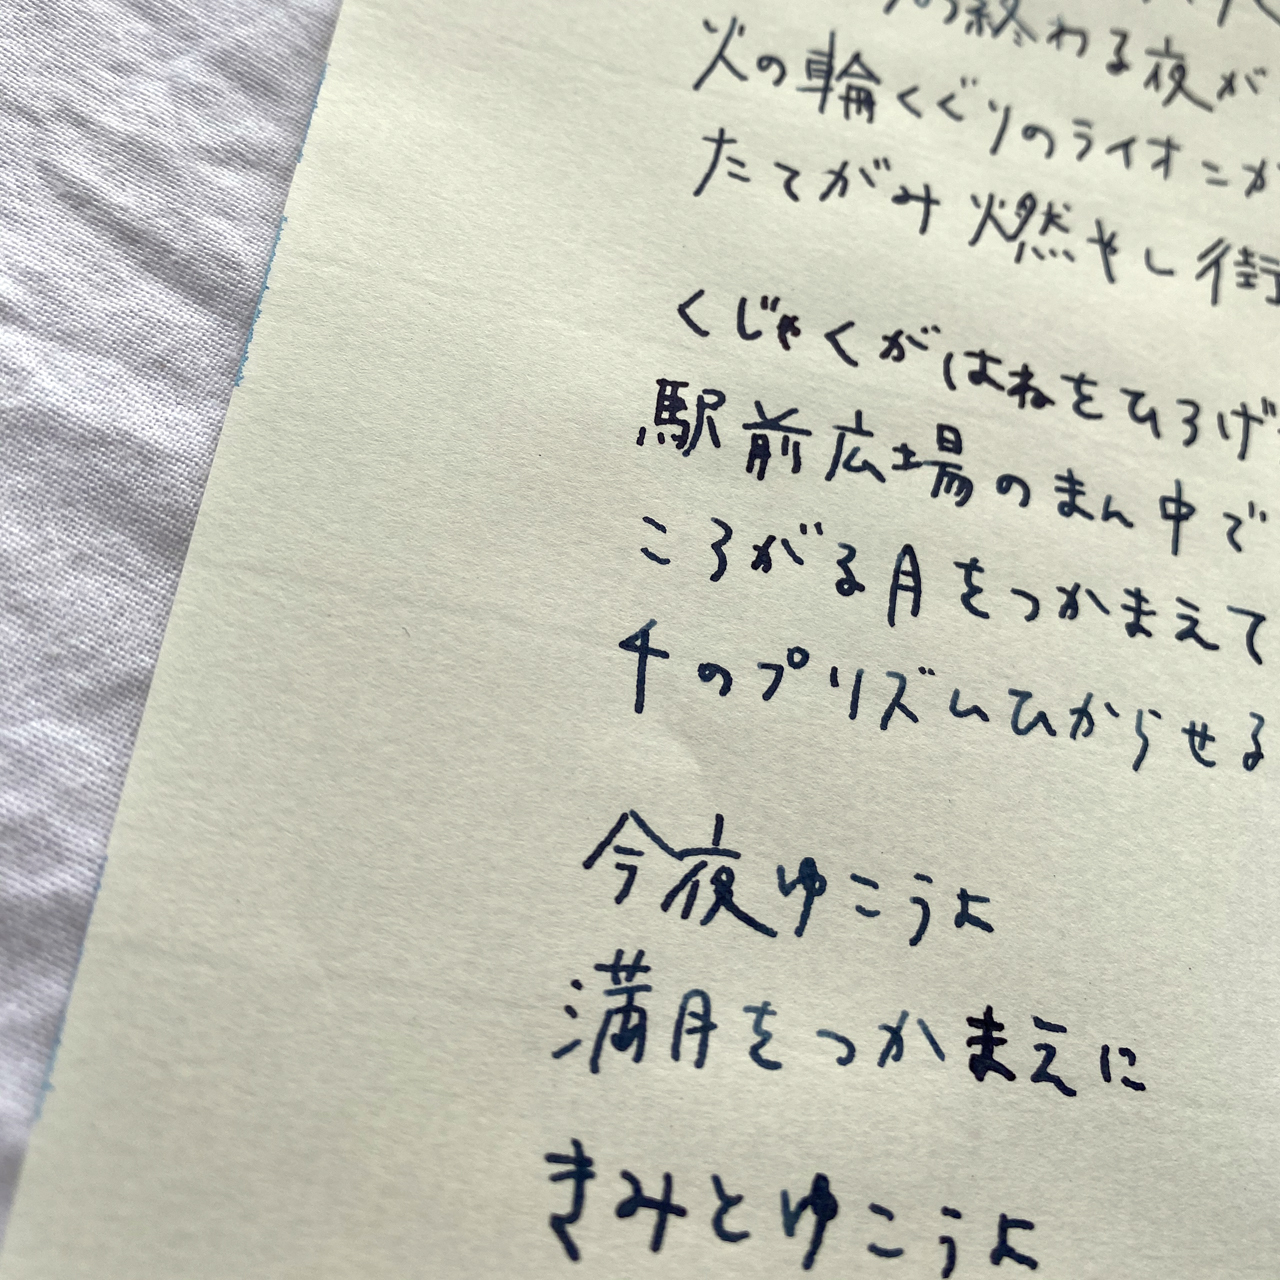 の終わる夜が
火の輪くぐりのライオンが
たてがみ燃やし街
くじゃくがはねをひろげ
駅前広場のまん中で
ころがる月をつかまえて
千のプリズムひからせる
今夜ゆこうよ
満月をつかまえに
きみとゆこうよ